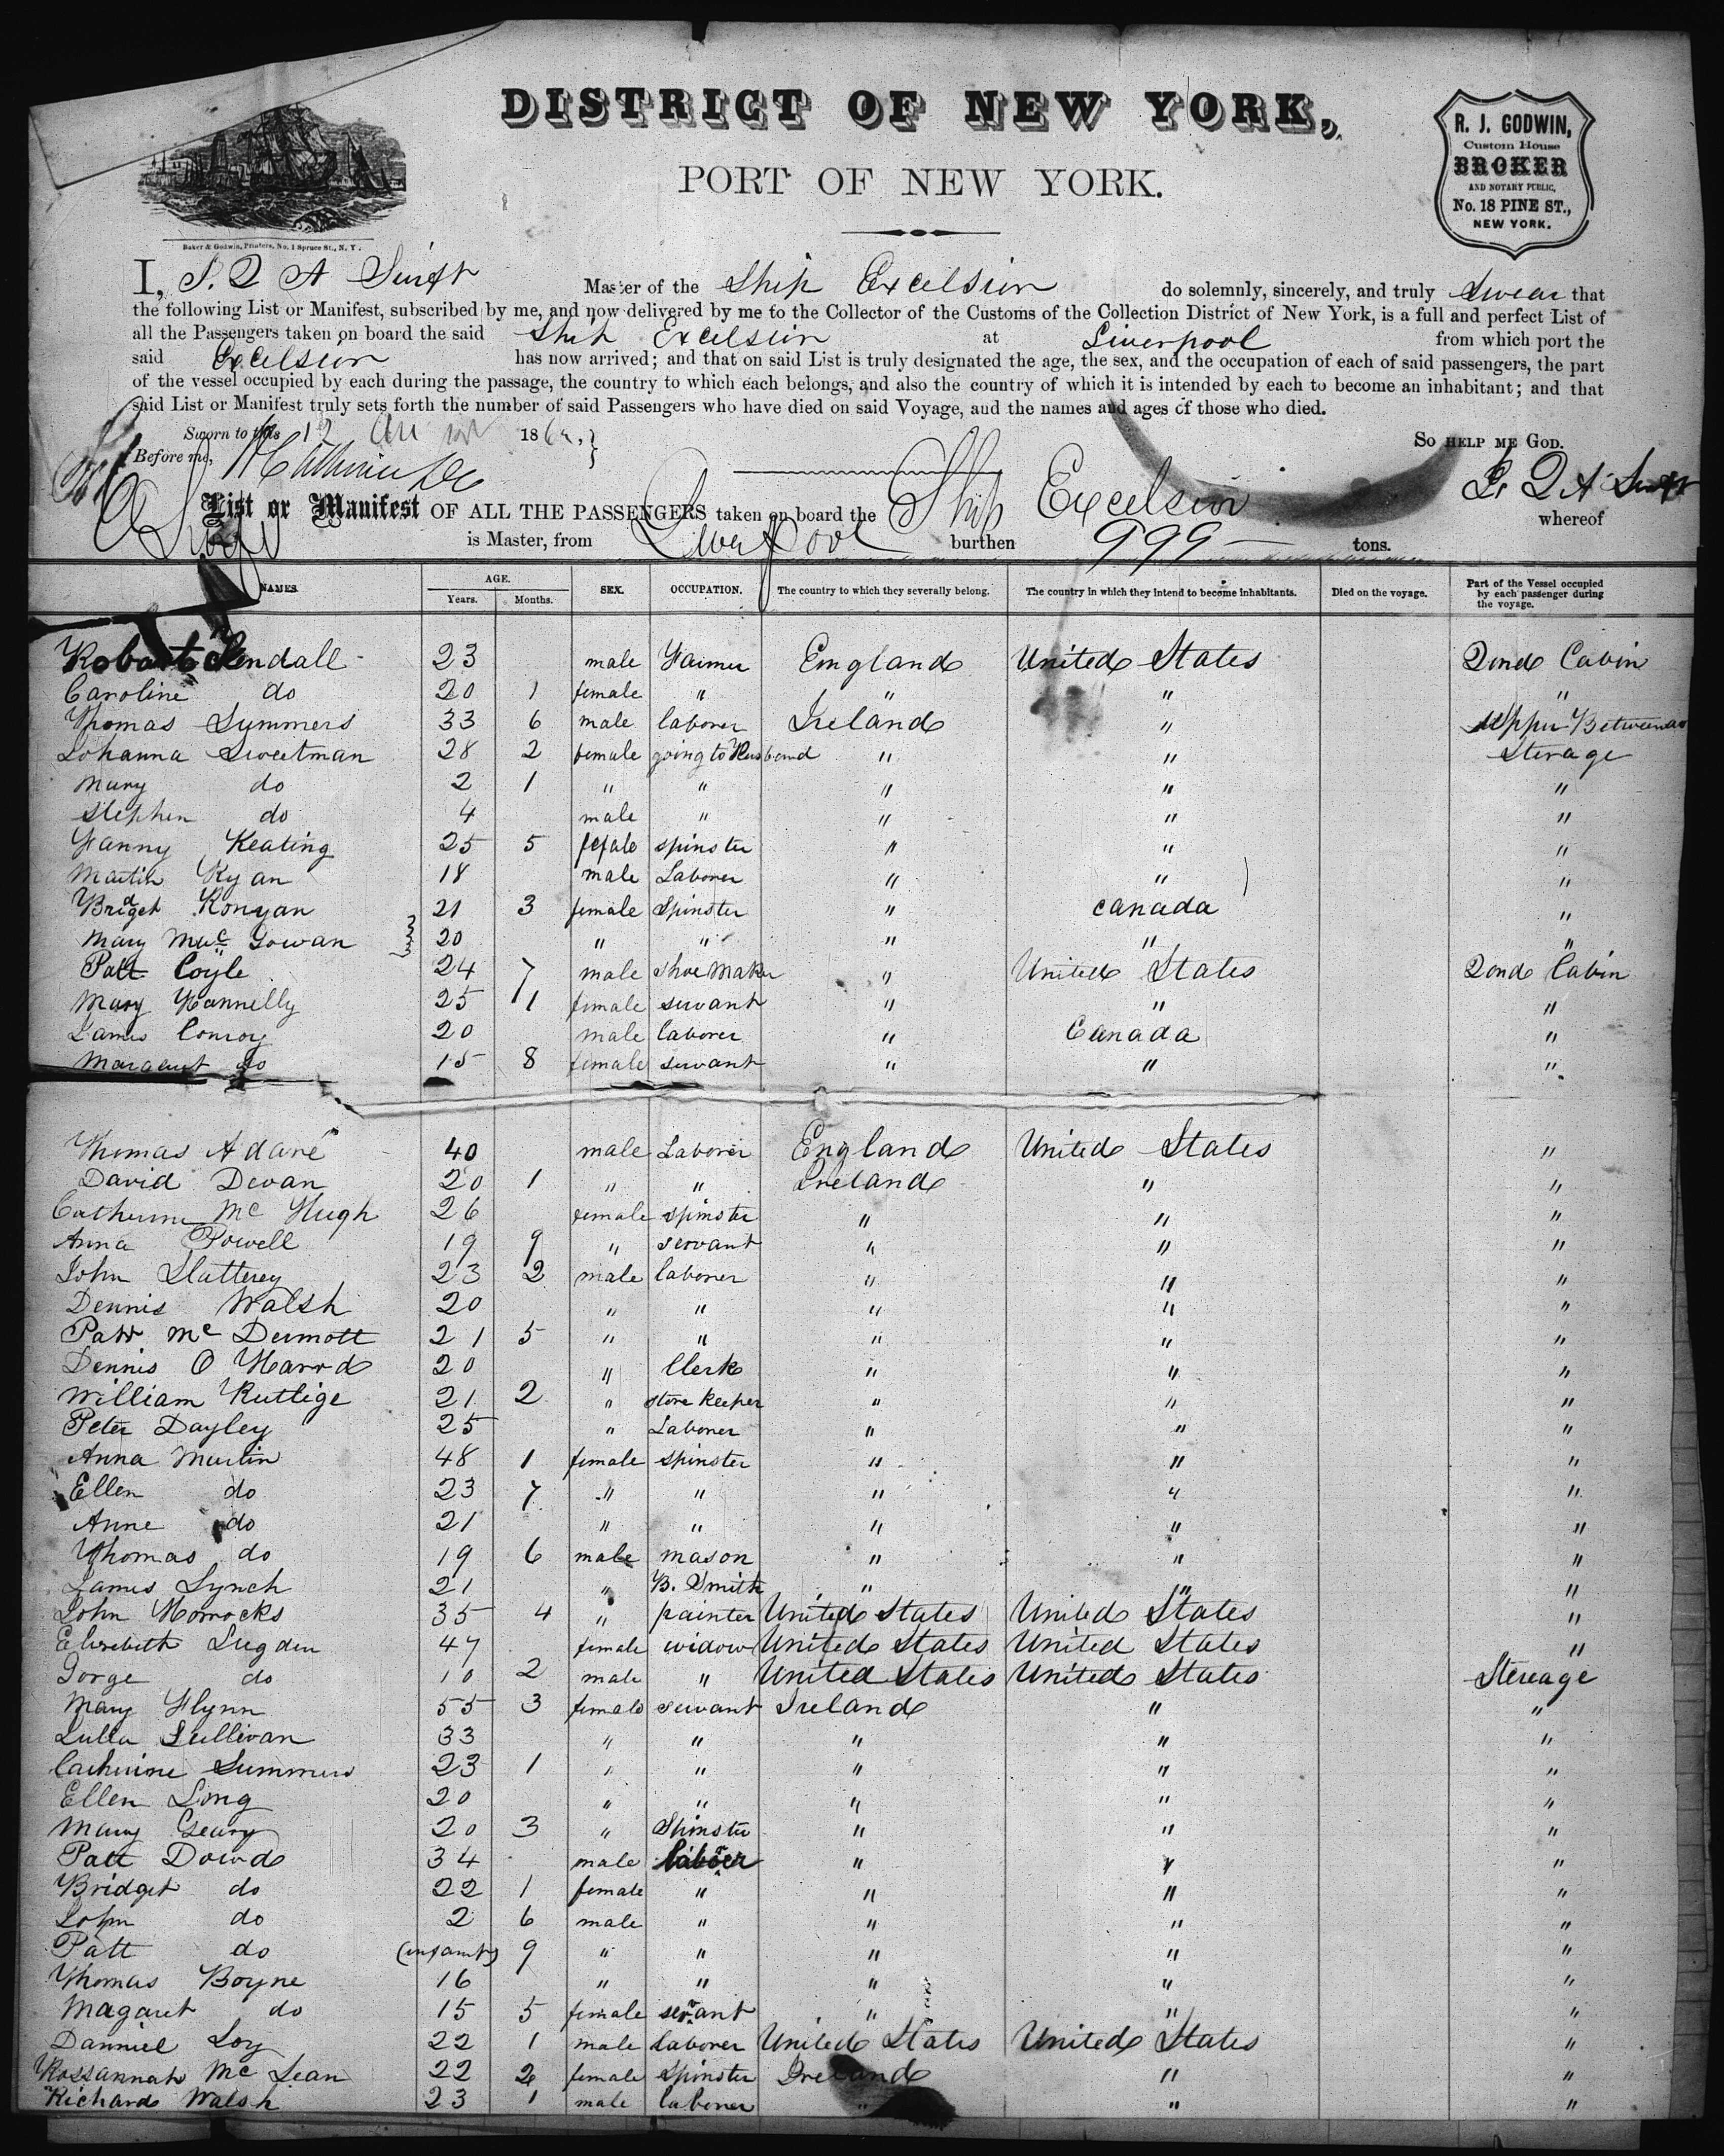 DISTRICT OF NEW YORK,
PORT OF NEW YORK.
R. J. GODWIN,
Custom House
BROKER
AND NOTARY PUBLIC,
No. 18 PINE ST.,
NEW YORK.
Baker & Godwin, Printers, No. 1 Spruce St., N. Y.
I, Swift Master of the Ship Excelsior do solemnly, sincerely, and truly Swear that
the following List or Manifest, subscribed by me, and now delivered by me to the Collector of the Customs of the Collection District of New York, is a full and perfect List of
all the Passengers taken on board the said Ship Excelsior at Liverpool from which port the
said Excelsior has now arrived; and that on said List is truly designated the age, the sex, and the occupation of each of said passengers, the part
of the vessel occupied by each during the passage, the country to which each belongs, and also the country of which it is intended by each to become an inhabitant; and that
said List or Manifest truly sets forth the number of said Passengers who have died on said Voyage, and the names and ages of those who died.
Sworn to this 186
So HELP ME GOD.
Before me,
List or Manifest OF ALL THE PASSENGERS taken on board the Ship Excelsior whereof
is Master, from Liverpool burthen 999 tons.
NAMES AGE. Years. Months. SEX. OCCUPATION. The country to which they severally belong. The country in which they intend to become inhabitants. Died on the voyage. Part of the Vessel occupied by each passenger during the voyage.
Kendall 23 male Farmer England United States 2nd Cabin
Caroline do 20 1 female " " " "
Thomas Summers 33 6 male laborer Ireland " Upper Between
Johanna Sweetman 28 2 female going to Husband " " Sterage
Mary do 2 1 " " " " "
Stephen do 4 male " " " "
Fanny Keating 25 5 spinster " " "
Martin Ryan 18 male Laborer " " "
Bridget Konyan 21 3 female Spinster " Canada "
Mary Gowan 20 " " " " "
Patt Coyle 24 7 male Shoe Maker " United States 2nd Cabin
Mary Hannelly 25 1 female servant " " "
James Conroy 20 male laborer " Canada "
Margaret do 15 8 female servant " " "
Thomas Adare 40 male Laborer England United States "
David Devan 20 1 " " Ireland " "
Catherine Mc Hugh 26 female spinster " " "
Anna Powell 19 9 " servant " " "
John Slatterey 23 2 male laborer " " "
Dennis Walsh 20 " " " " "
Patt Mc Dermott 21 5 " " " " "
Dennis O 20 " Clerk " " "
William Rutlige 21 2 " store keeper " " "
Peter Dayley 25 " Laborer " " "
Anna Martin 48 1 female spinster " " "
Ellen do 23 7 " " " " "
Anne do 21 " " " " "
Thomas do 19 6 male mason " " "
James Lynch 21 " B. Smith " " "
John Horrocks 35 4 " painter United States United States "
Elizebeth Sugden 47 female widow United States United States "
Gorge do 10 2 male " United States United States Sterage
Mary Flynn 55 3 female servant Ireland " "
Sullivan 33 " " " " "
Catherine Summers 23 1 " " " " "
Ellen Long 20 " " " " "
Mary Geary 20 3 " Spinster " " "
Patt Dowd 34 male " " "
Bridget do 22 1 female " " " "
John do 2 6 male " " " "
Patt do (infant) 9 " " " " "
Thomas Boyne 16 " " " " "
Magaret do 15 5 female servant " " "
Danniel Loy 22 1 male laborer United States United States "
Rossannah Mc Lean 22 2 female spinster Ireland " "
Richard Walsh 23 1 male laborer " " "